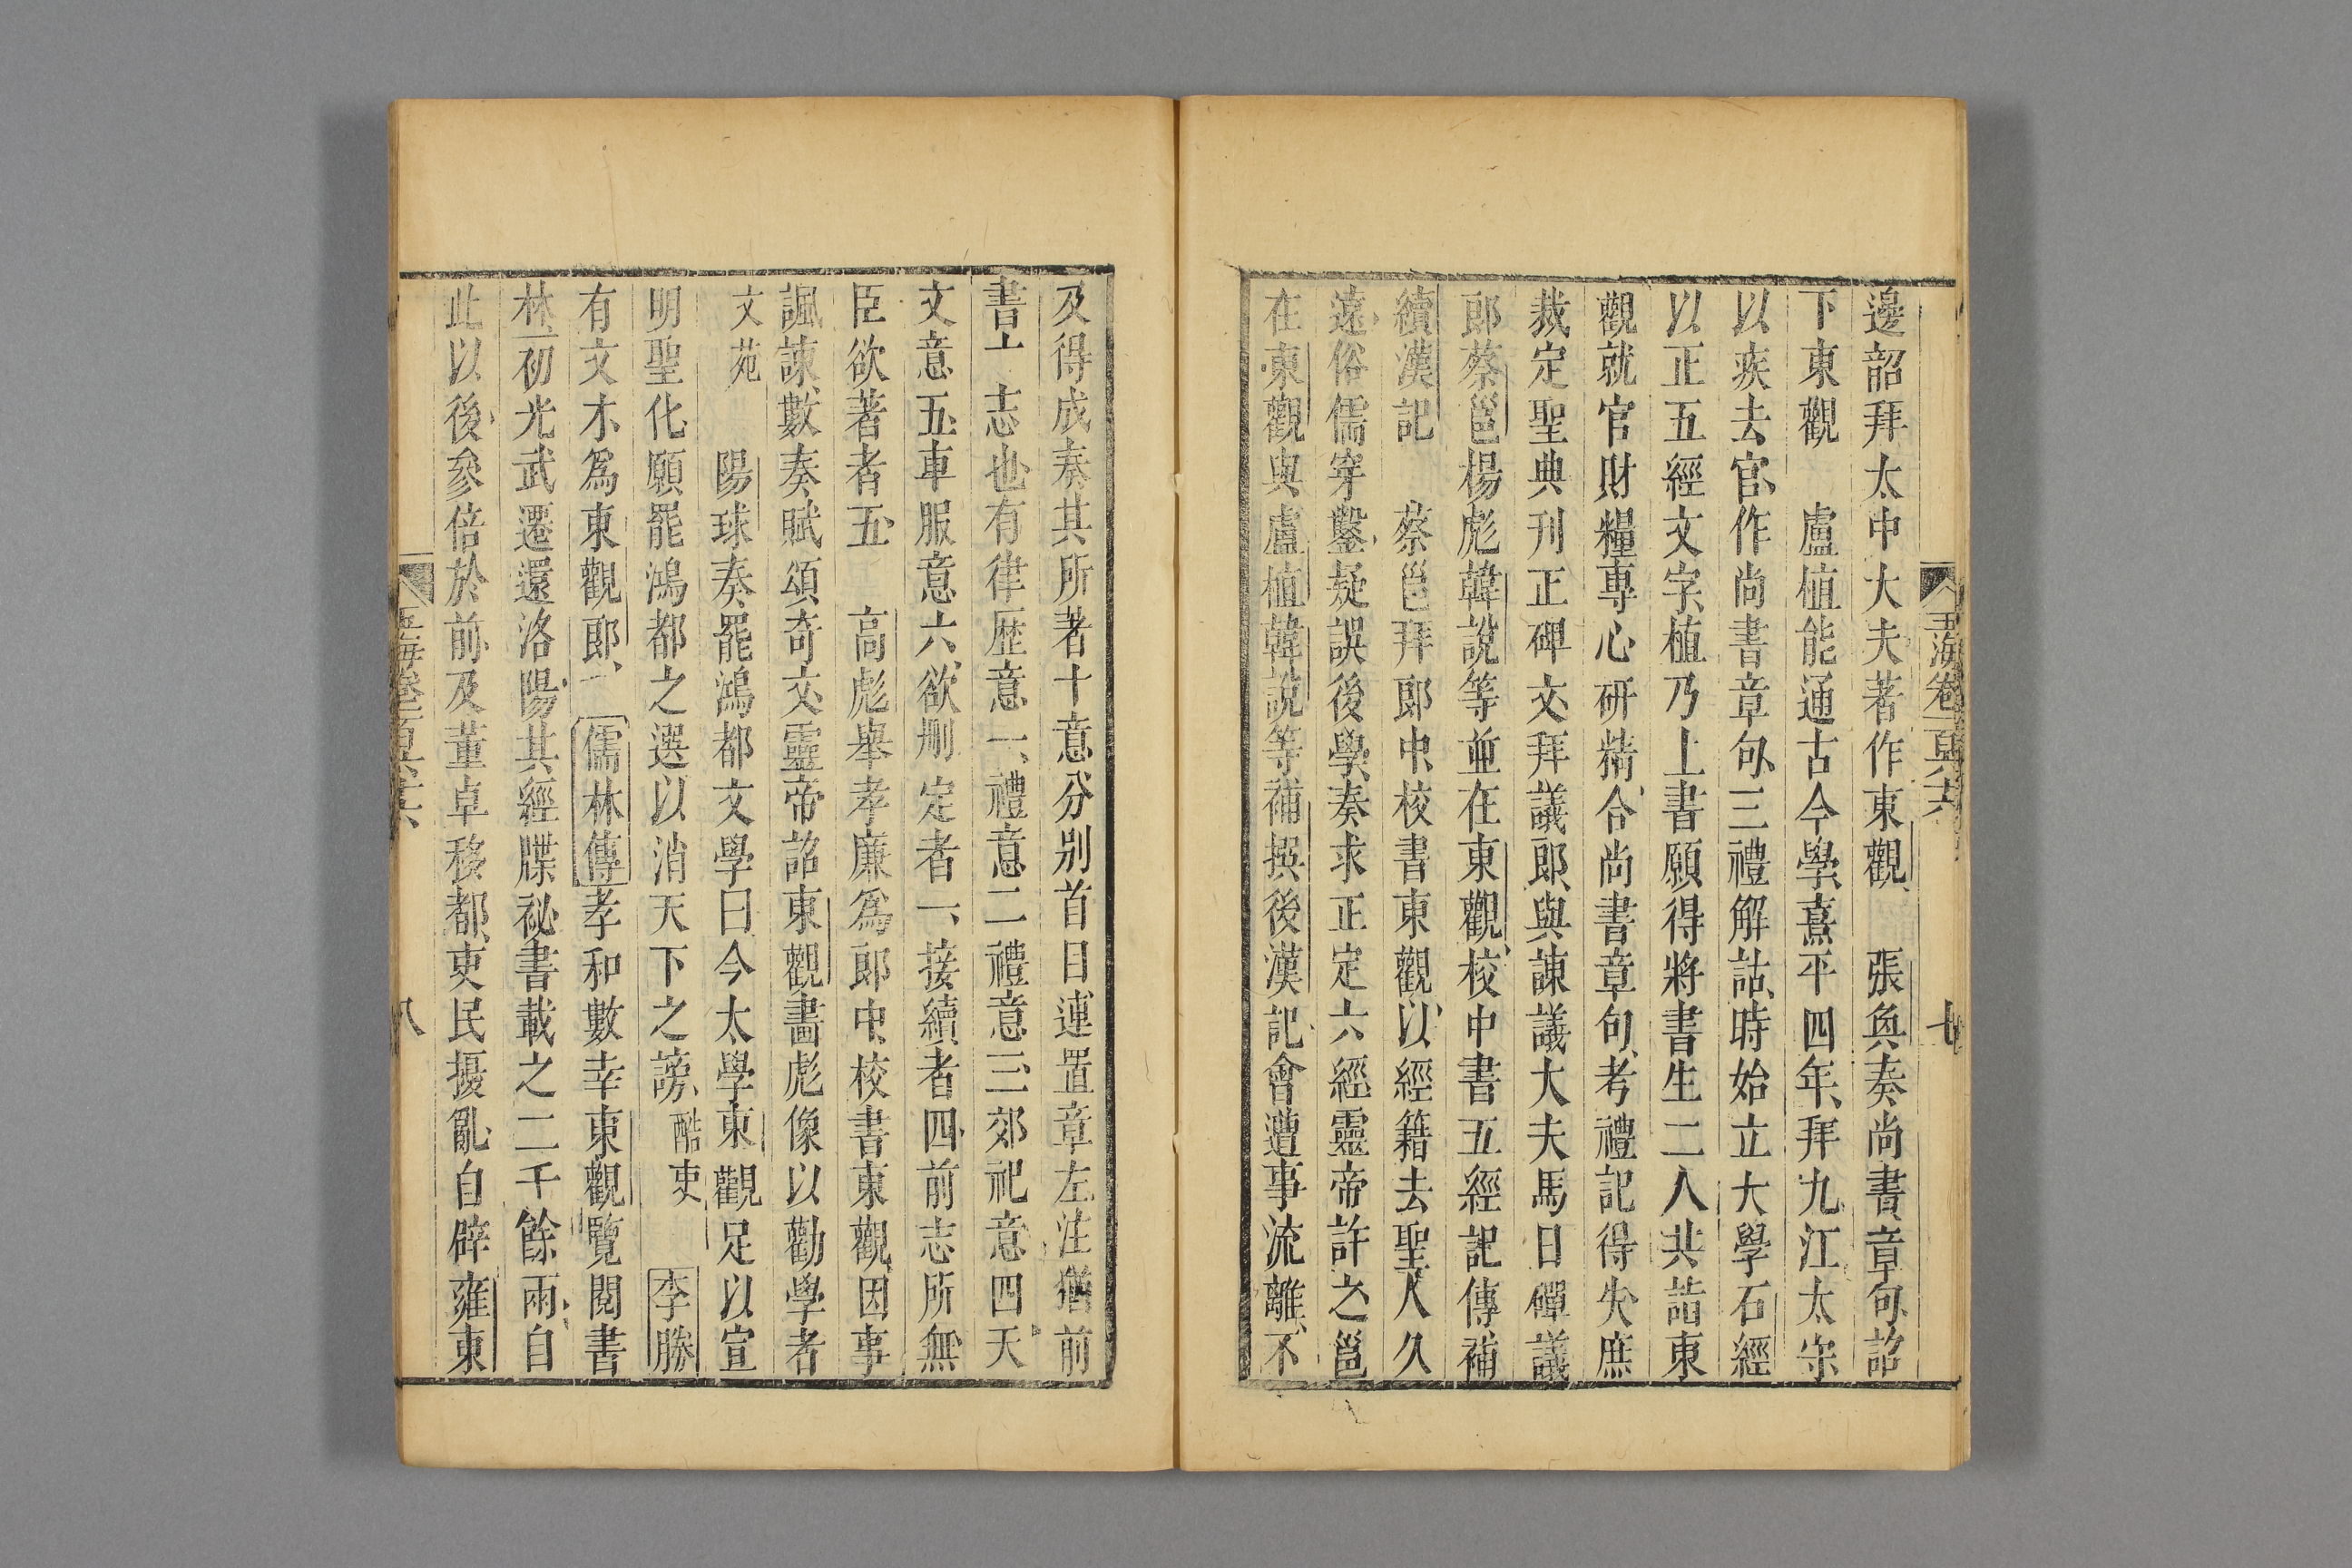 邊韶拜太中大夫著作東觀　張奐奏尚書章句詔
下東觀　盧植能通古今學熹平四年拜九江太守
以疾去官作尚書章句三禮解詁時始立大學石經
以正五經文字植乃上書願得將書生二人共詣東
觀就官財糧專心硏精合尚書章句考禮記得失庶
裁定聖典刊正碑文拜議郎與諫議大夫馬日磾議
郎蔡邕楊彪韓說等並在東觀校中書五經記傳補
續漢記　蔡邕拜郎中校書東觀以經籍去聖人久
遠俗儒穿鑿疑誤後學奏求正定六經靈帝許之邕
在東觀與盧植韓說等補撰後漢記會遭事流離不
玉海卷　七
及得成奏其所著十意分別首目連置章左注猶前
書十志也有律歷意一禮意二禮意三郊祀意四天
文意五車服意六欲刪定者一接續者四前志所無
臣欲著者五　高彪舉孝廉爲郎中校書東觀因事
諷諫數奏賦頌奇文靈帝詔東觀畵彪像以勸學者
文苑　陽球奏罷鴻都文學曰今太學東觀足以宣
明聖化願罷鴻都之選以消天下之謗酷吏　李勝
有文才爲東觀郎　儒林傳孝和數幸東觀覽閱書
林　初光武遷還洛陽其經牒祕書載之二千餘兩自
此以後參倍於前及董卓移都吏民擾亂自辟雍東
玉海卷　八